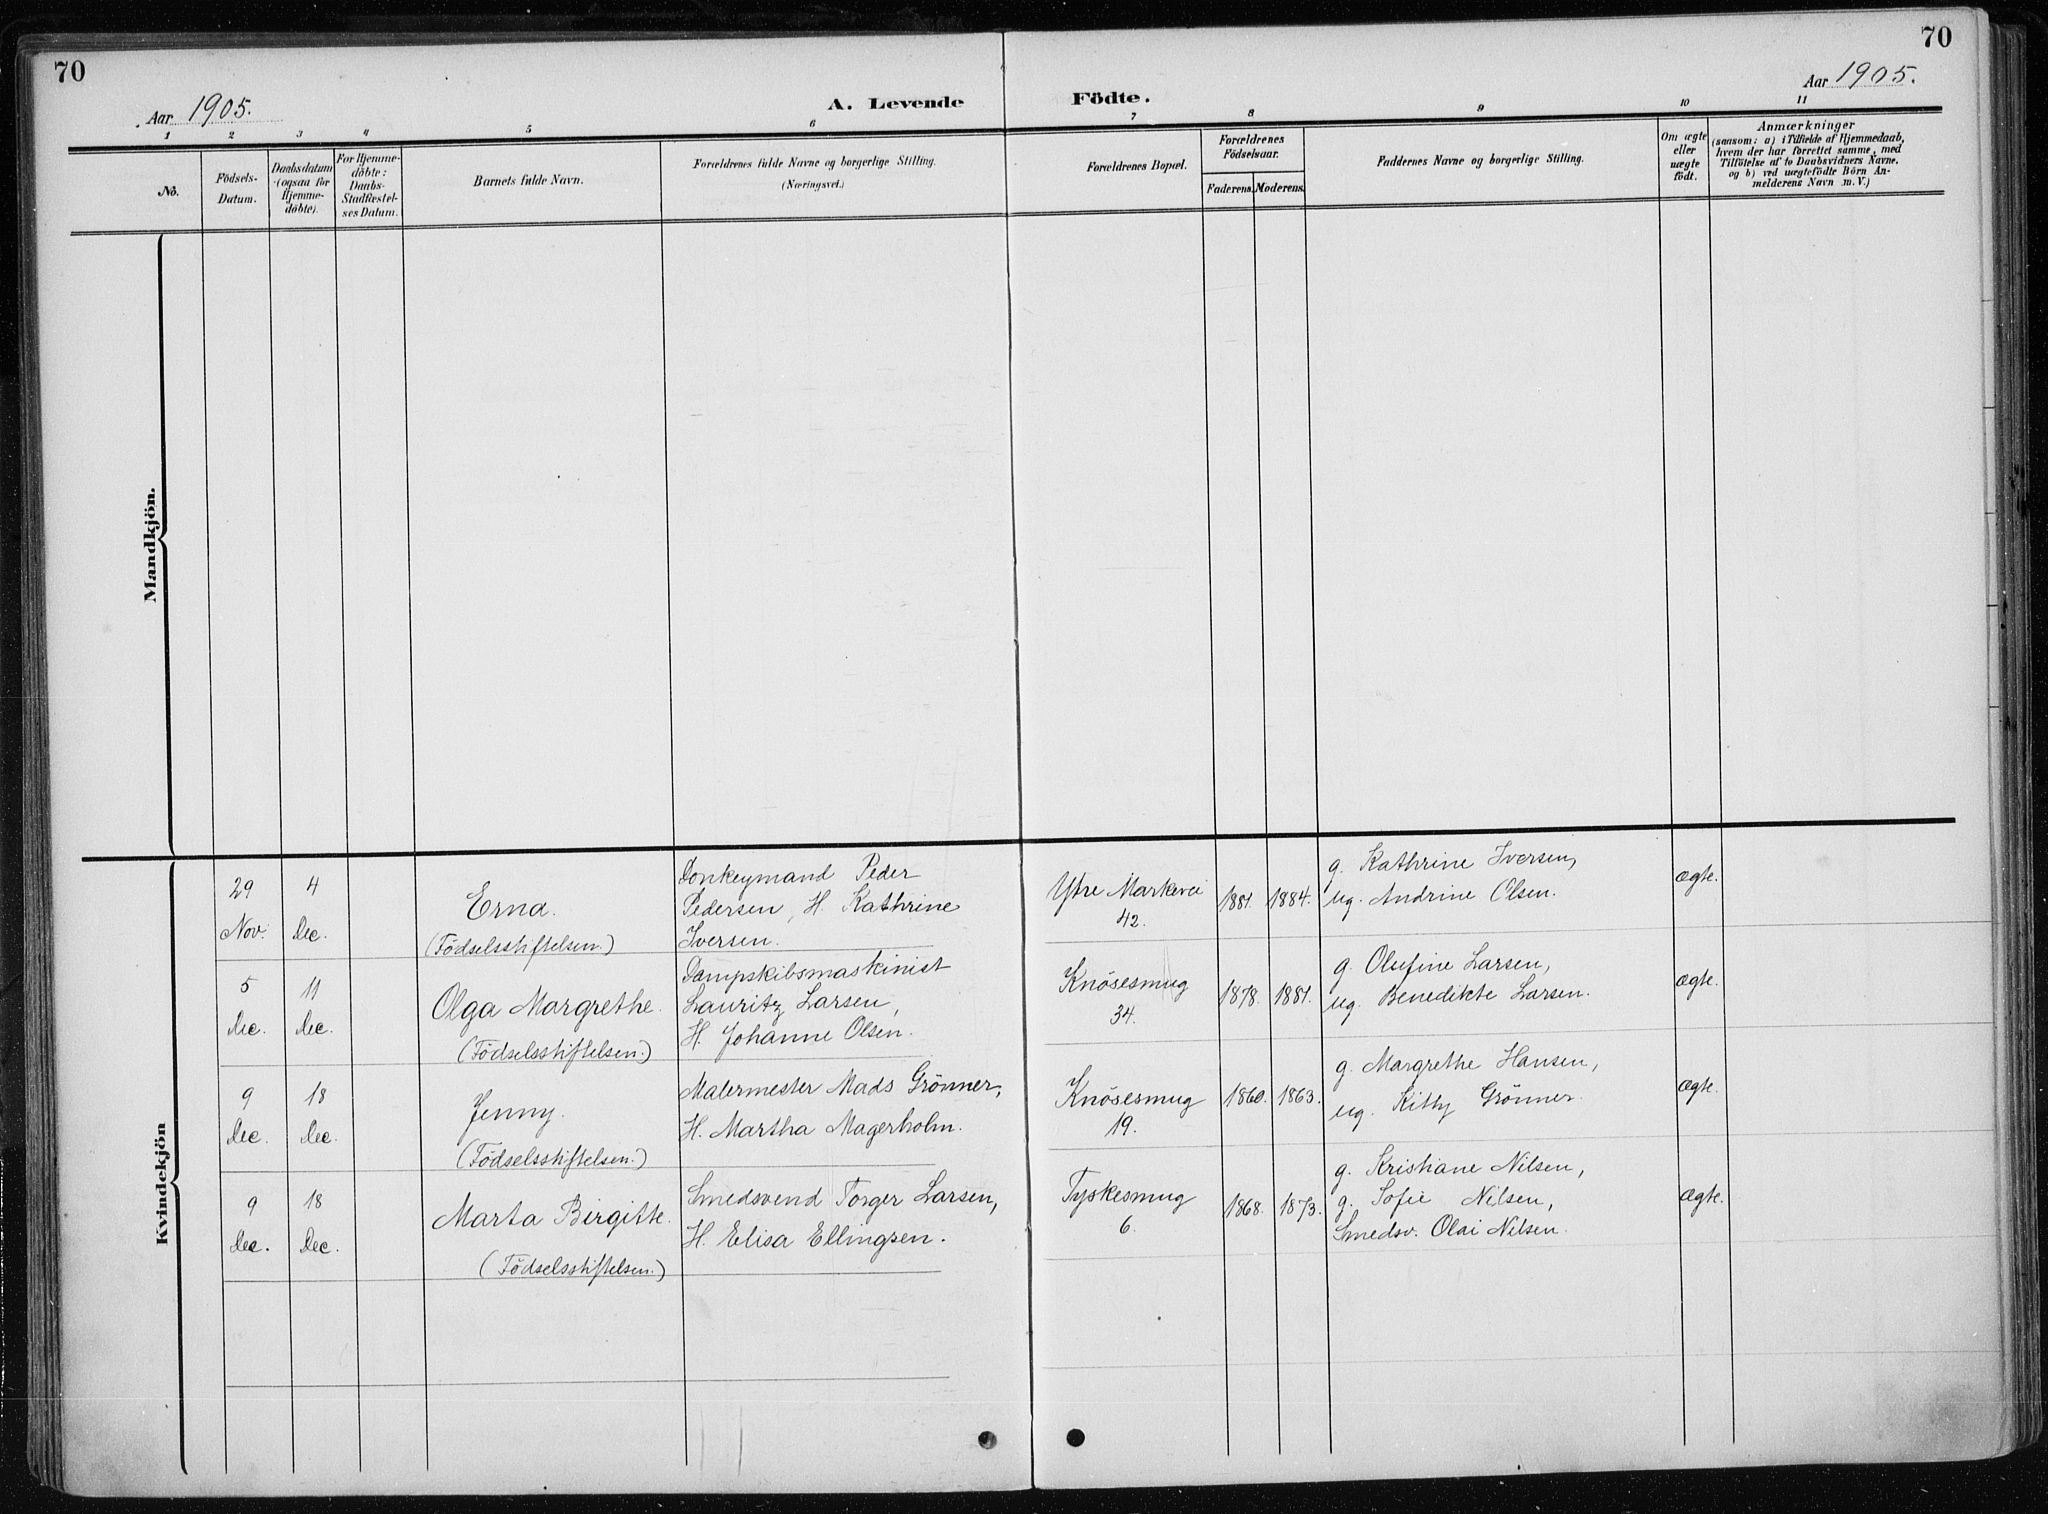 70
70
Aar 1905.
A. Levende Födte.
Aar 1905.
1 2 3 4 5 6 7 8 9 10 11
No.
Födsels-
Datum.
Daabsdatum
(ogsaa for
Hjemme-
döbte).
For Hjemme-
döbte:
Daabs-
Stadfæstel-
ses Datum.
Barnets fulde Navn.
Forældrenes fulde Navne og borgerlige Stilling.
(Næringsvei.)
Forældrenes Bopæl.
Forældrenes
Födselsaar.
Faderens. Moderens.
Faddernes Navne og borgerlige Stilling.
Om ægte
eller
uægte
födt.
Anmærkninger
(saasom: a) i Tilfælde af Hjemmedaab,
hvem der har forrettet samme, med
Tilföielse af to Daabsvidners Navne,
og b) ved uægtefödte Börn An-
melderens Navn m. V.)
Mandkjön.
Kvindekjön
29
Nov.
4
Dec.
Erna.
(Födselsstiftelsen.)
Donkeymand Peder
Pedersen, H. Kathrine
Iversen.
Ytre Markevei
42.
1881. 1884.
g. Kathrine Iversen,
ug. Andrine Olsen.
ægte.
5
Dec.
11
Dec.
Olga Margrethe.
(Födselsstiftelsen.)
Dampskibsmaskinist
Lauritz Larsen,
H. Johanne Olsen.
Knösesmug
34.
1878. 1881.
g. Olufine Larsen,
ug. Benedikte Larsen.
ægte.
9
Dec.
18
Dec.
Jenny.
(Födselsstiftelsen.)
Malermester Mads Grönner,
H. Martha Magerholm.
Knösesmug
19.
1860. 1863.
g. Margrethe Hansen,
ug. Kitty Grönner.
ægte.
9
Dec.
18
Dec.
Marta Birgitte.
(Födselsstiftelsen.)
Smedsvend Torger Larsen,
H. Elisa Ellingsen.
Tyskesmug
6.
1868. 1873.
g. Kristiane Nilsen,
g. Sofie Nilsen,
Smedsv. Olai Nilsen.
ægte.